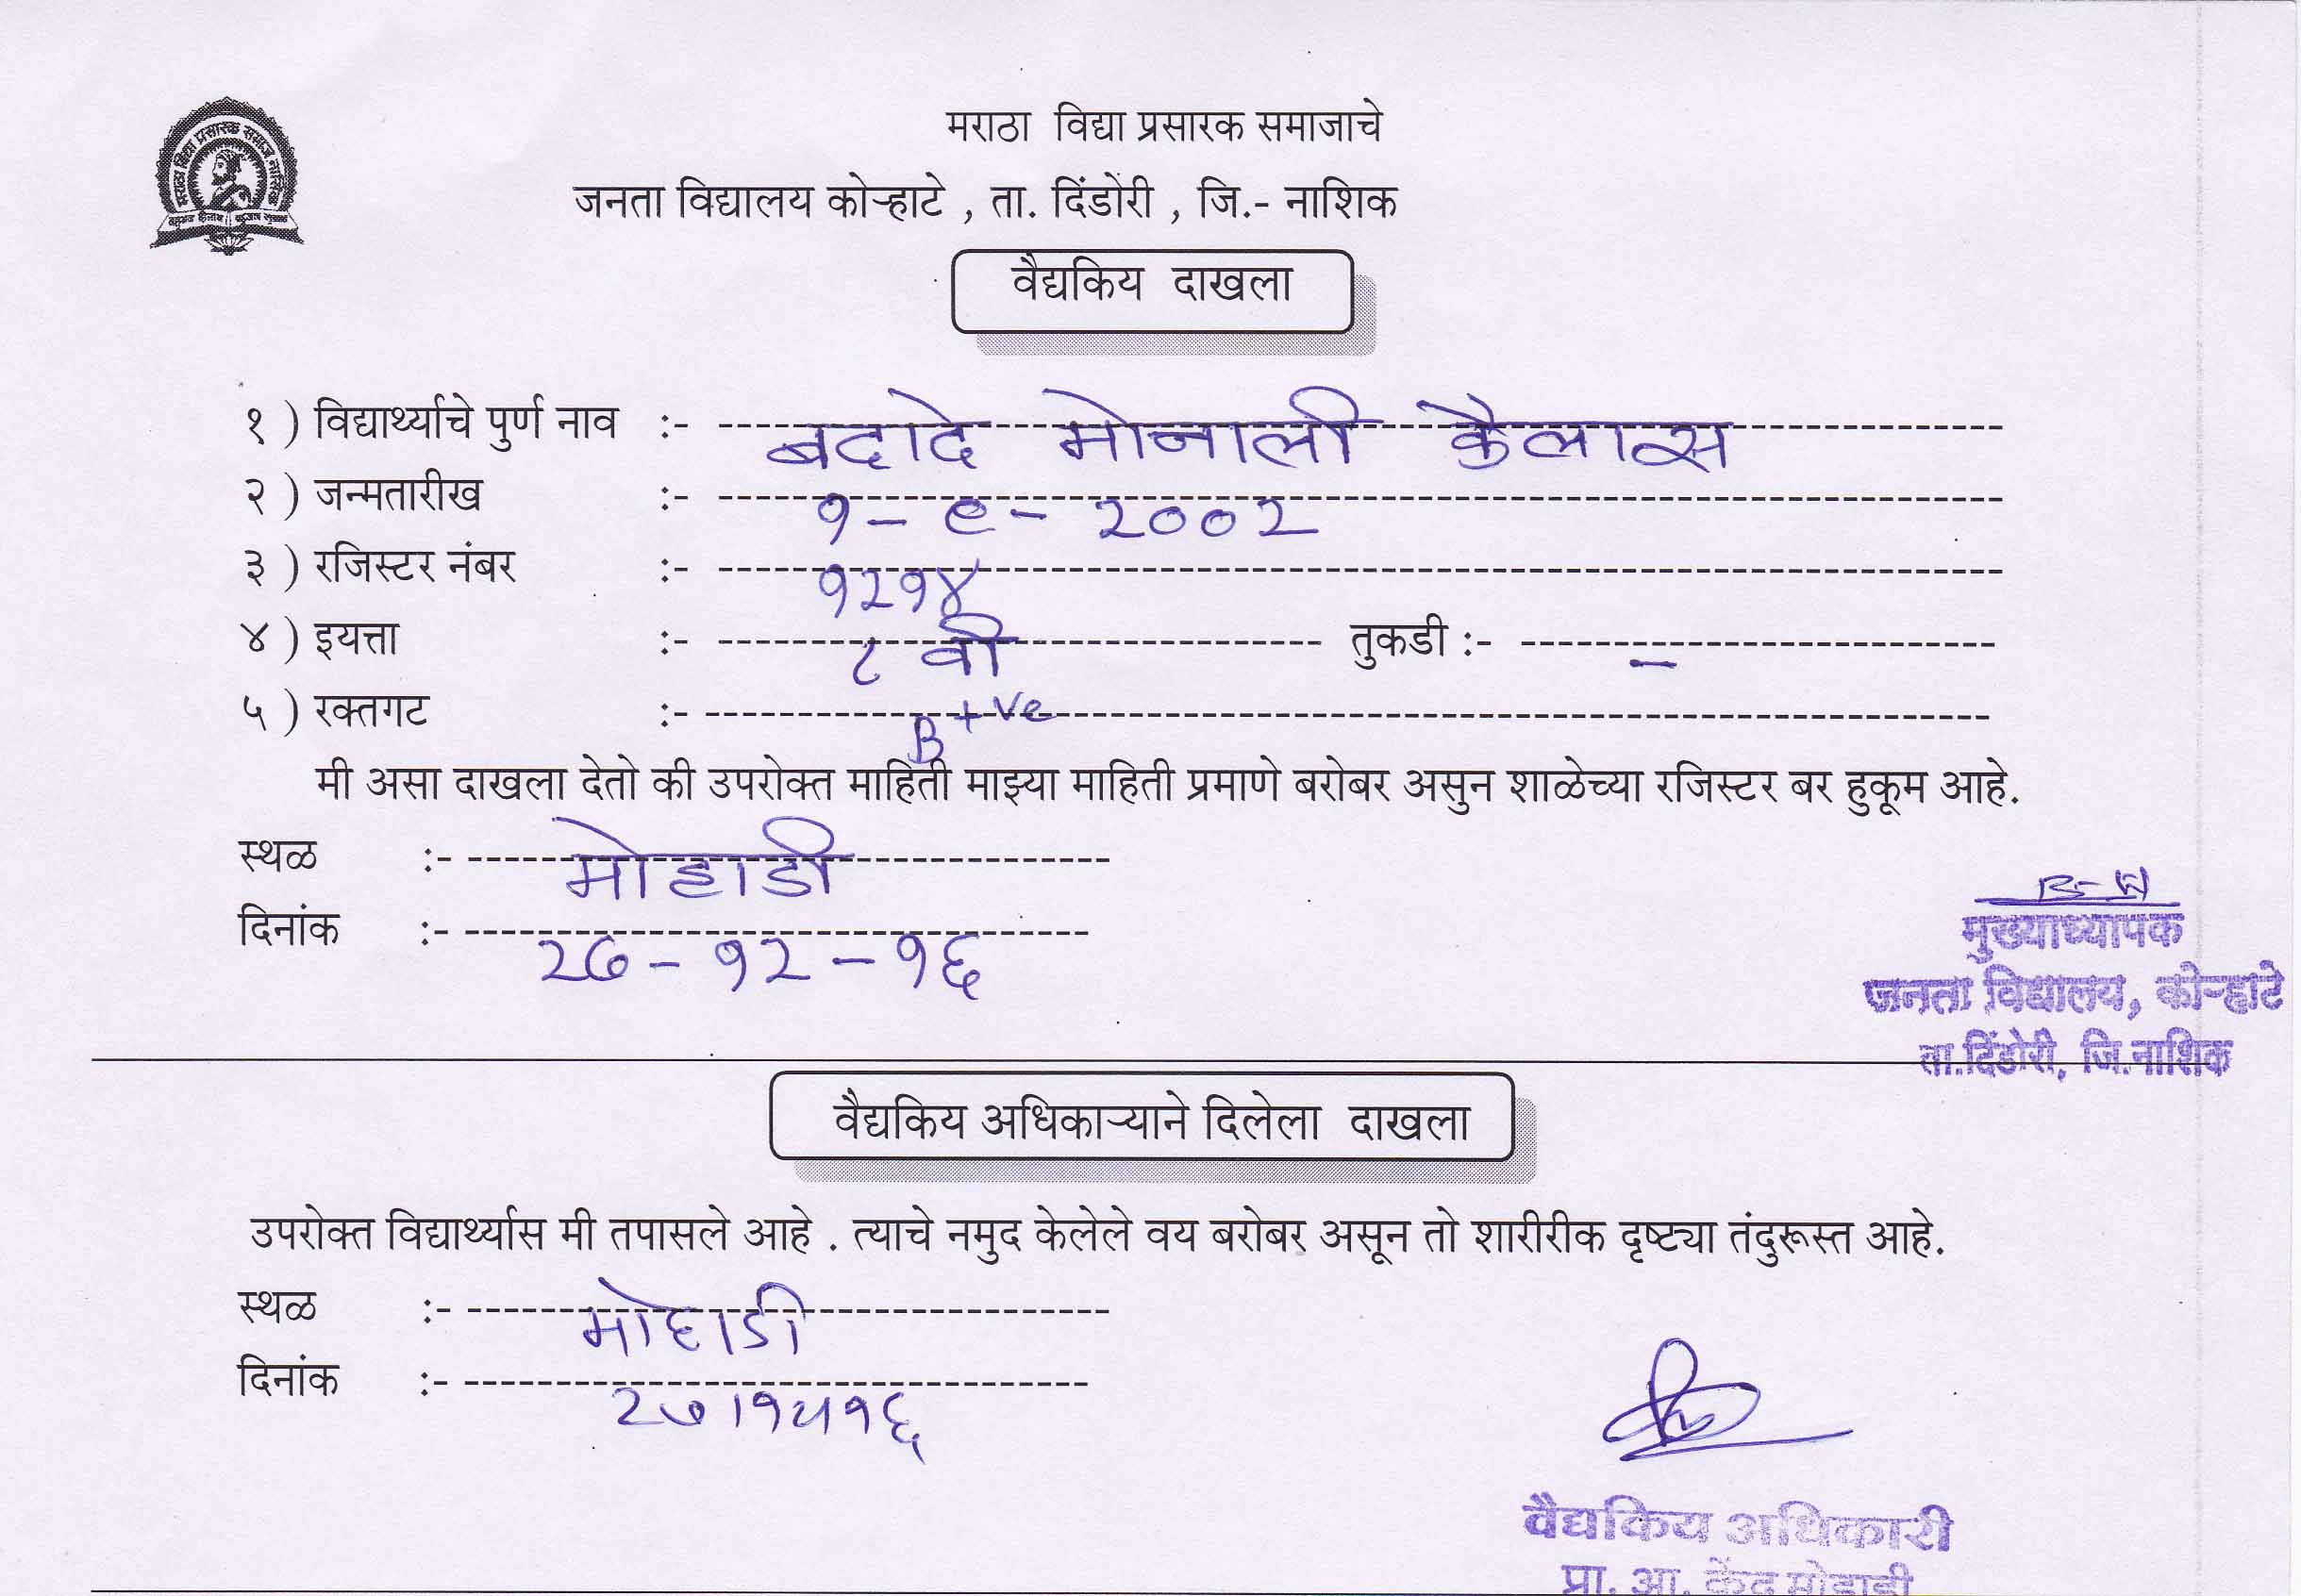 मराठा विद्या प्रसारक समाजाचे
जनता विद्यालय कोऱ्हाटे , ता. दिंडोरी , जि.- नाशिक
वैद्यकिय दाखला
१ ) विद्यार्थ्याचे पुर्ण नाव :- बदादे मोनाली कैलास
२ ) जन्मतारीख :- १-९-२००२
३ ) रजिस्टर नंबर :- १२१४
४ ) इयत्ता :- ८ वी तुकडी :- –
५ ) रक्तगट :- B +ve
मी असा दाखला देतो की उपरोक्त माहिती माझ्या माहिती प्रमाणे बरोबर असुन शाळेच्या रजिस्टर बर हुकूम आहे.
स्थळ :- मोहाडी
दिनांक :- २७-१२-१६
मुख्याध्यापक
जनता विद्यालय, कोऱ्हाटे
ता.दिंडोरी, जि.नाशिक
वैद्यकिय अधिकाऱ्याने दिलेला दाखला
उपरोक्त विद्यार्थ्यास मी तपासले आहे . त्याचे नमुद केलेले वय बरोबर असून तो शारीरीक दृष्ट्या तंदुरूस्त आहे.
स्थळ :- मोहाडी
दिनांक :-
वैद्यकिय अधिकारी
प्रा. आ. केंद्र मोहाडी